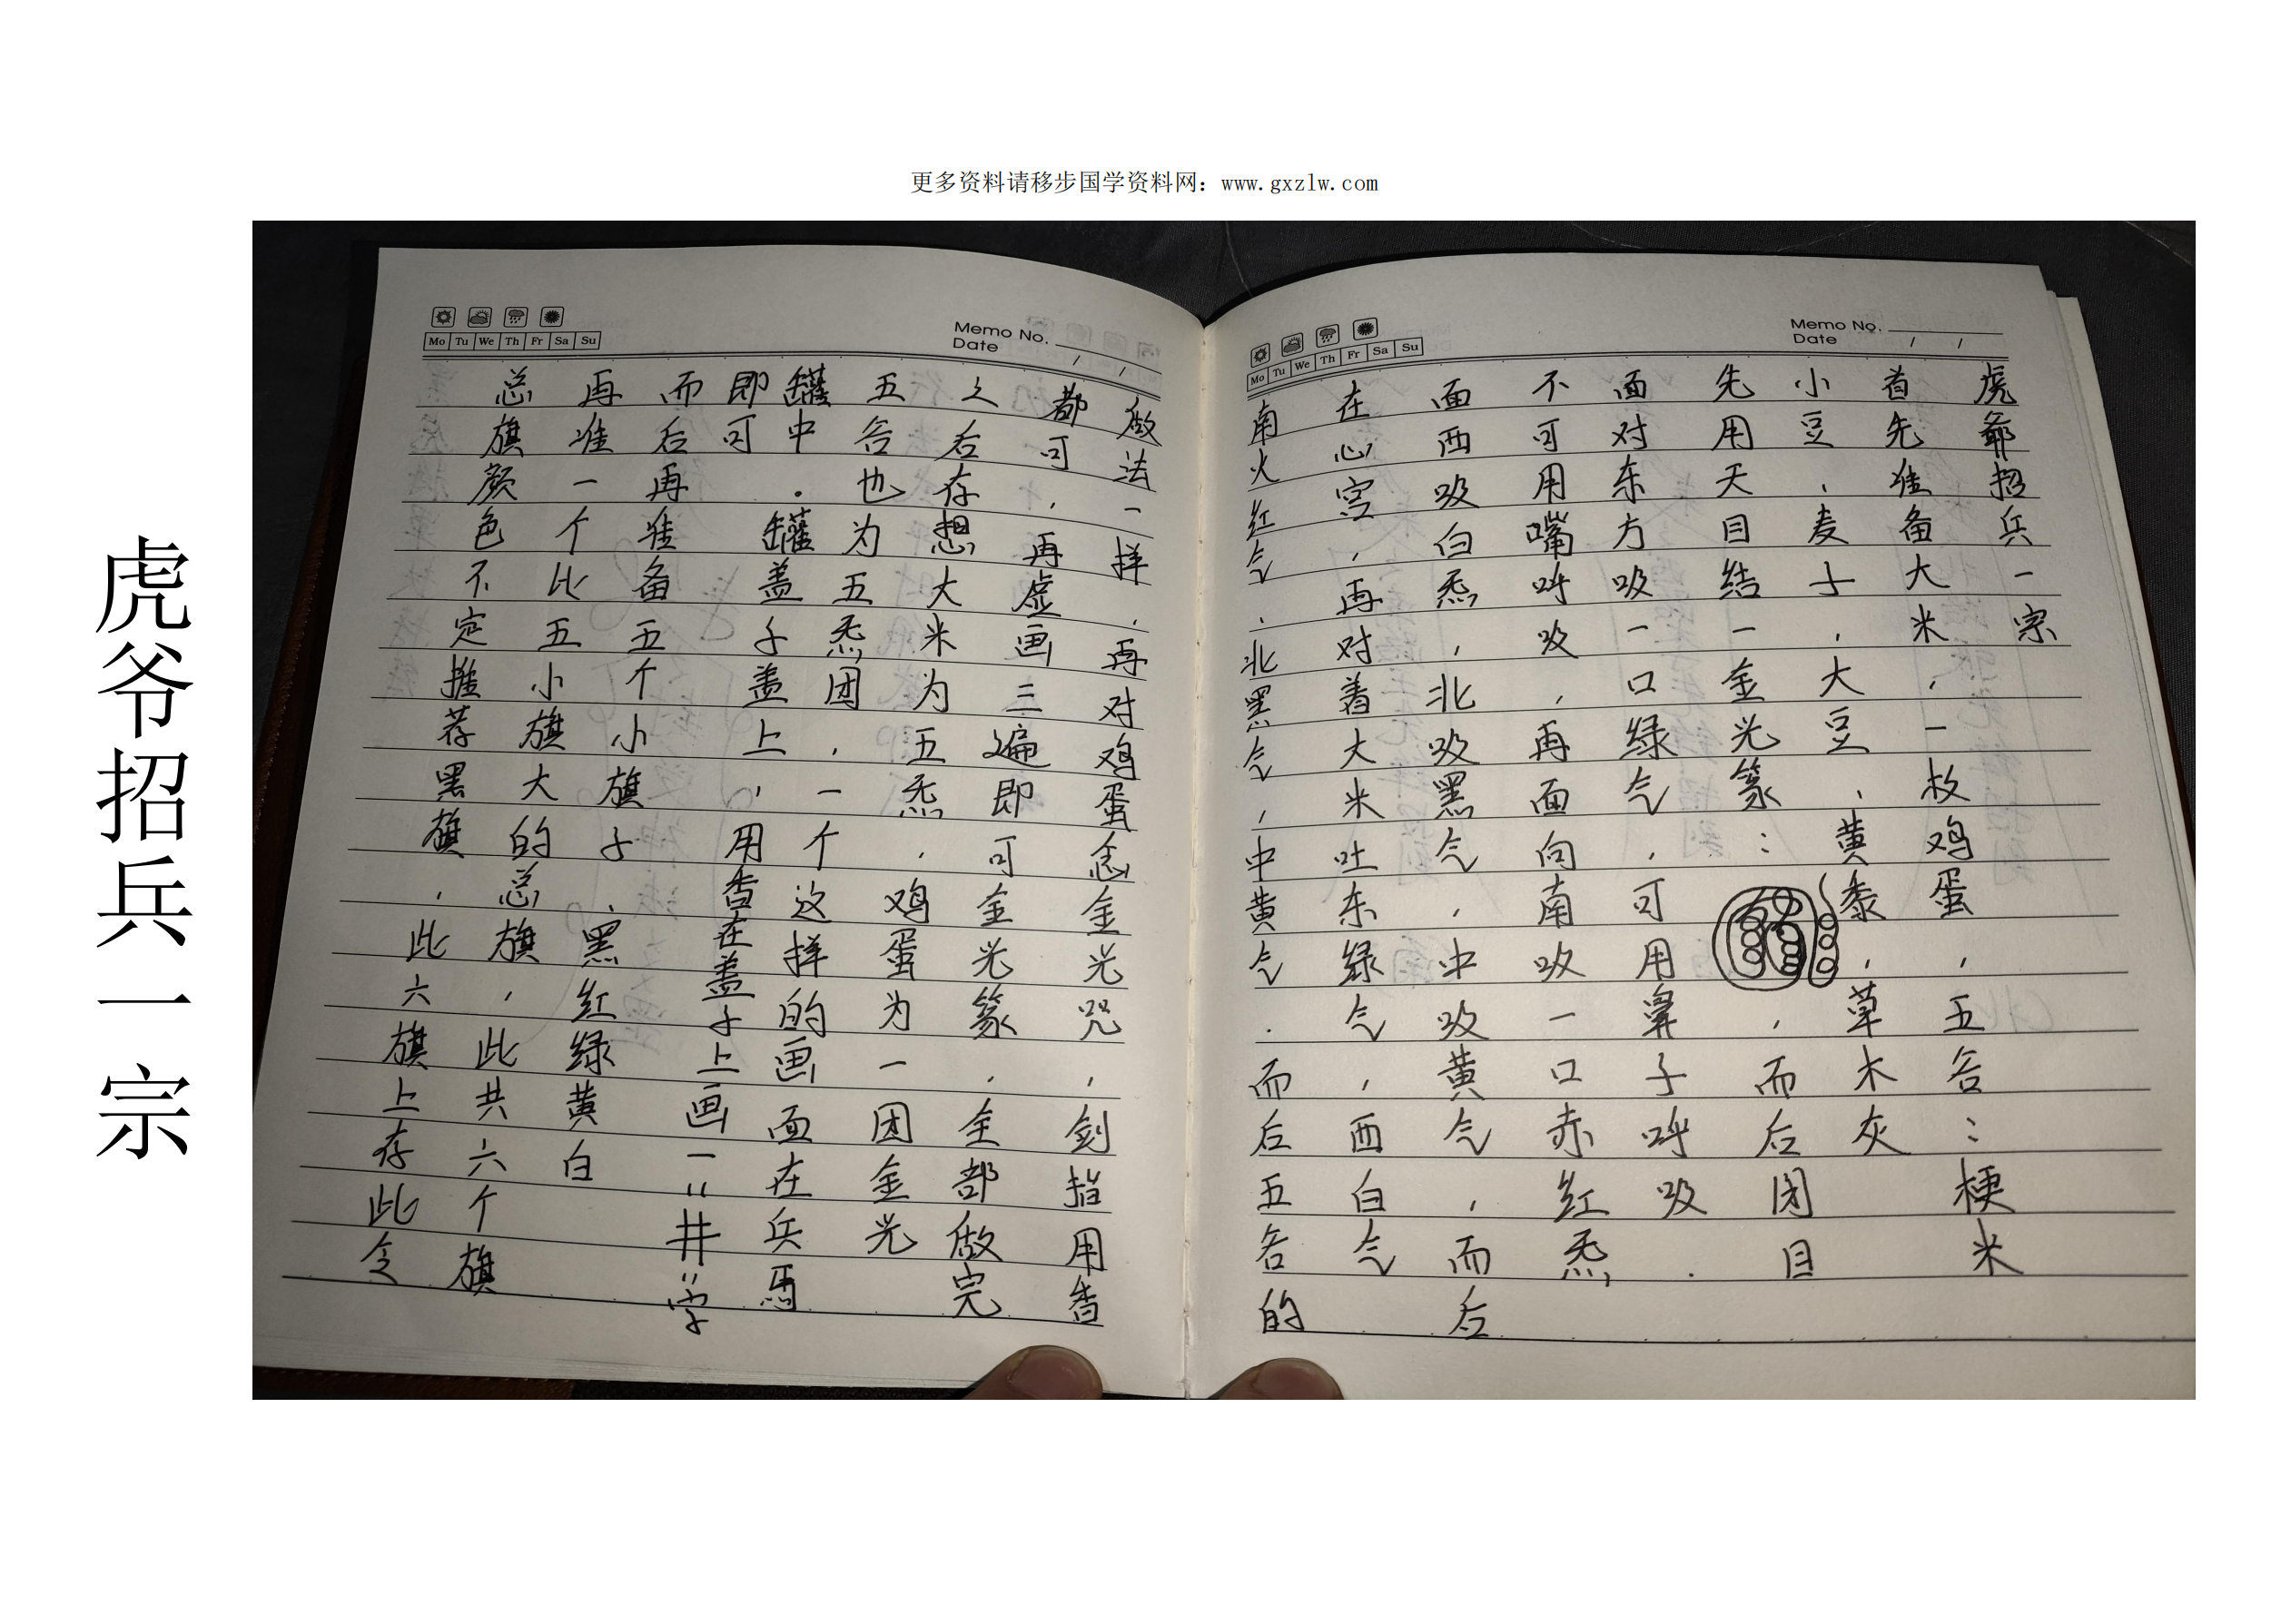 更多资料请移步国学资料网：www.gxzlw.com
虎爷招兵一宗
Memo No.
Date / /
Mo Tu We Th Fr Sa Su
虎爺招兵一宗
首先准备大米,一枚鸡蛋,五谷:梗米
小豆,麦子,大豆,黄黍,草木灰
先用天目结一金光篆:而后闭目
面对东方吸一口绿气,可用鼻子呼吸
不可用嘴呼吸,再面向南吸一口赤红炁.
面西吸白炁,北吸黑气,中吸黄气,而后
在心窍,再对着大米吐东绿气,西白气
南火红气.北黑气,中黄气.而后五谷的
Memo No.
Date / /
Mo Tu We Th Fr Sa Su
做法一样,再对鸡蛋念金光咒,剑指用香
都可,再虚画三遍即可金光篆,全部做完
之后存想大米为五炁,鸡蛋为一团金光
五谷也为五炁团,一个这样的画面在兵馬
罐中.罐盖子盖上,用香在盖子上画一"井"字
即可
而后再准备五个小旗子,黑红绿黄白
再准一个比五小旗大的总旗,此共六个旗
总旗颜色不定推荐黑旗,此六旗上存此令